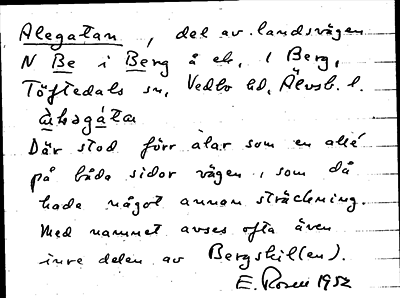 Alegatan, del av landsvägen
N Be i Berg å ek, 1 Berg,
Töftedals sn, Vedbo hd, Älvsb. l.
Där stod förr alar som en allé
på båda sidor vägen, som då
hade något annan sträckning.
Med namnet avses ofta även
inre delen av Bergskil(en).
E. Rosell 1952